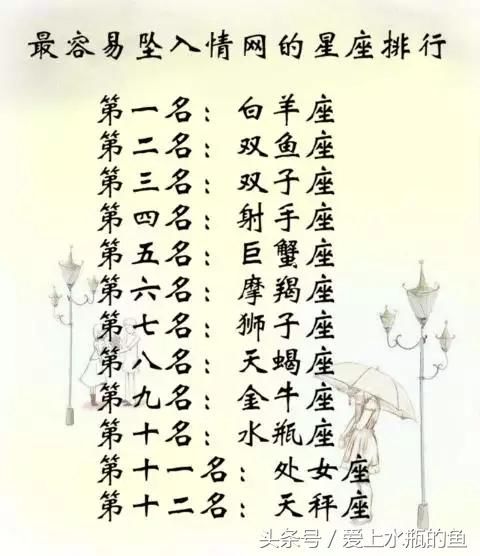 最容易坠入情网的星座排行
第一名：白羊座
第二名：双鱼座
第三名：双子座
第四名：射手座
第五名：巨蟹座
第六名：摩羯座
第七名：狮子座
第八名：天蝎座
第九名：金牛座
第十名：水瓶座
第十一名：处女座
第十二名：天秤座
头条号/爱上水瓶的鱼